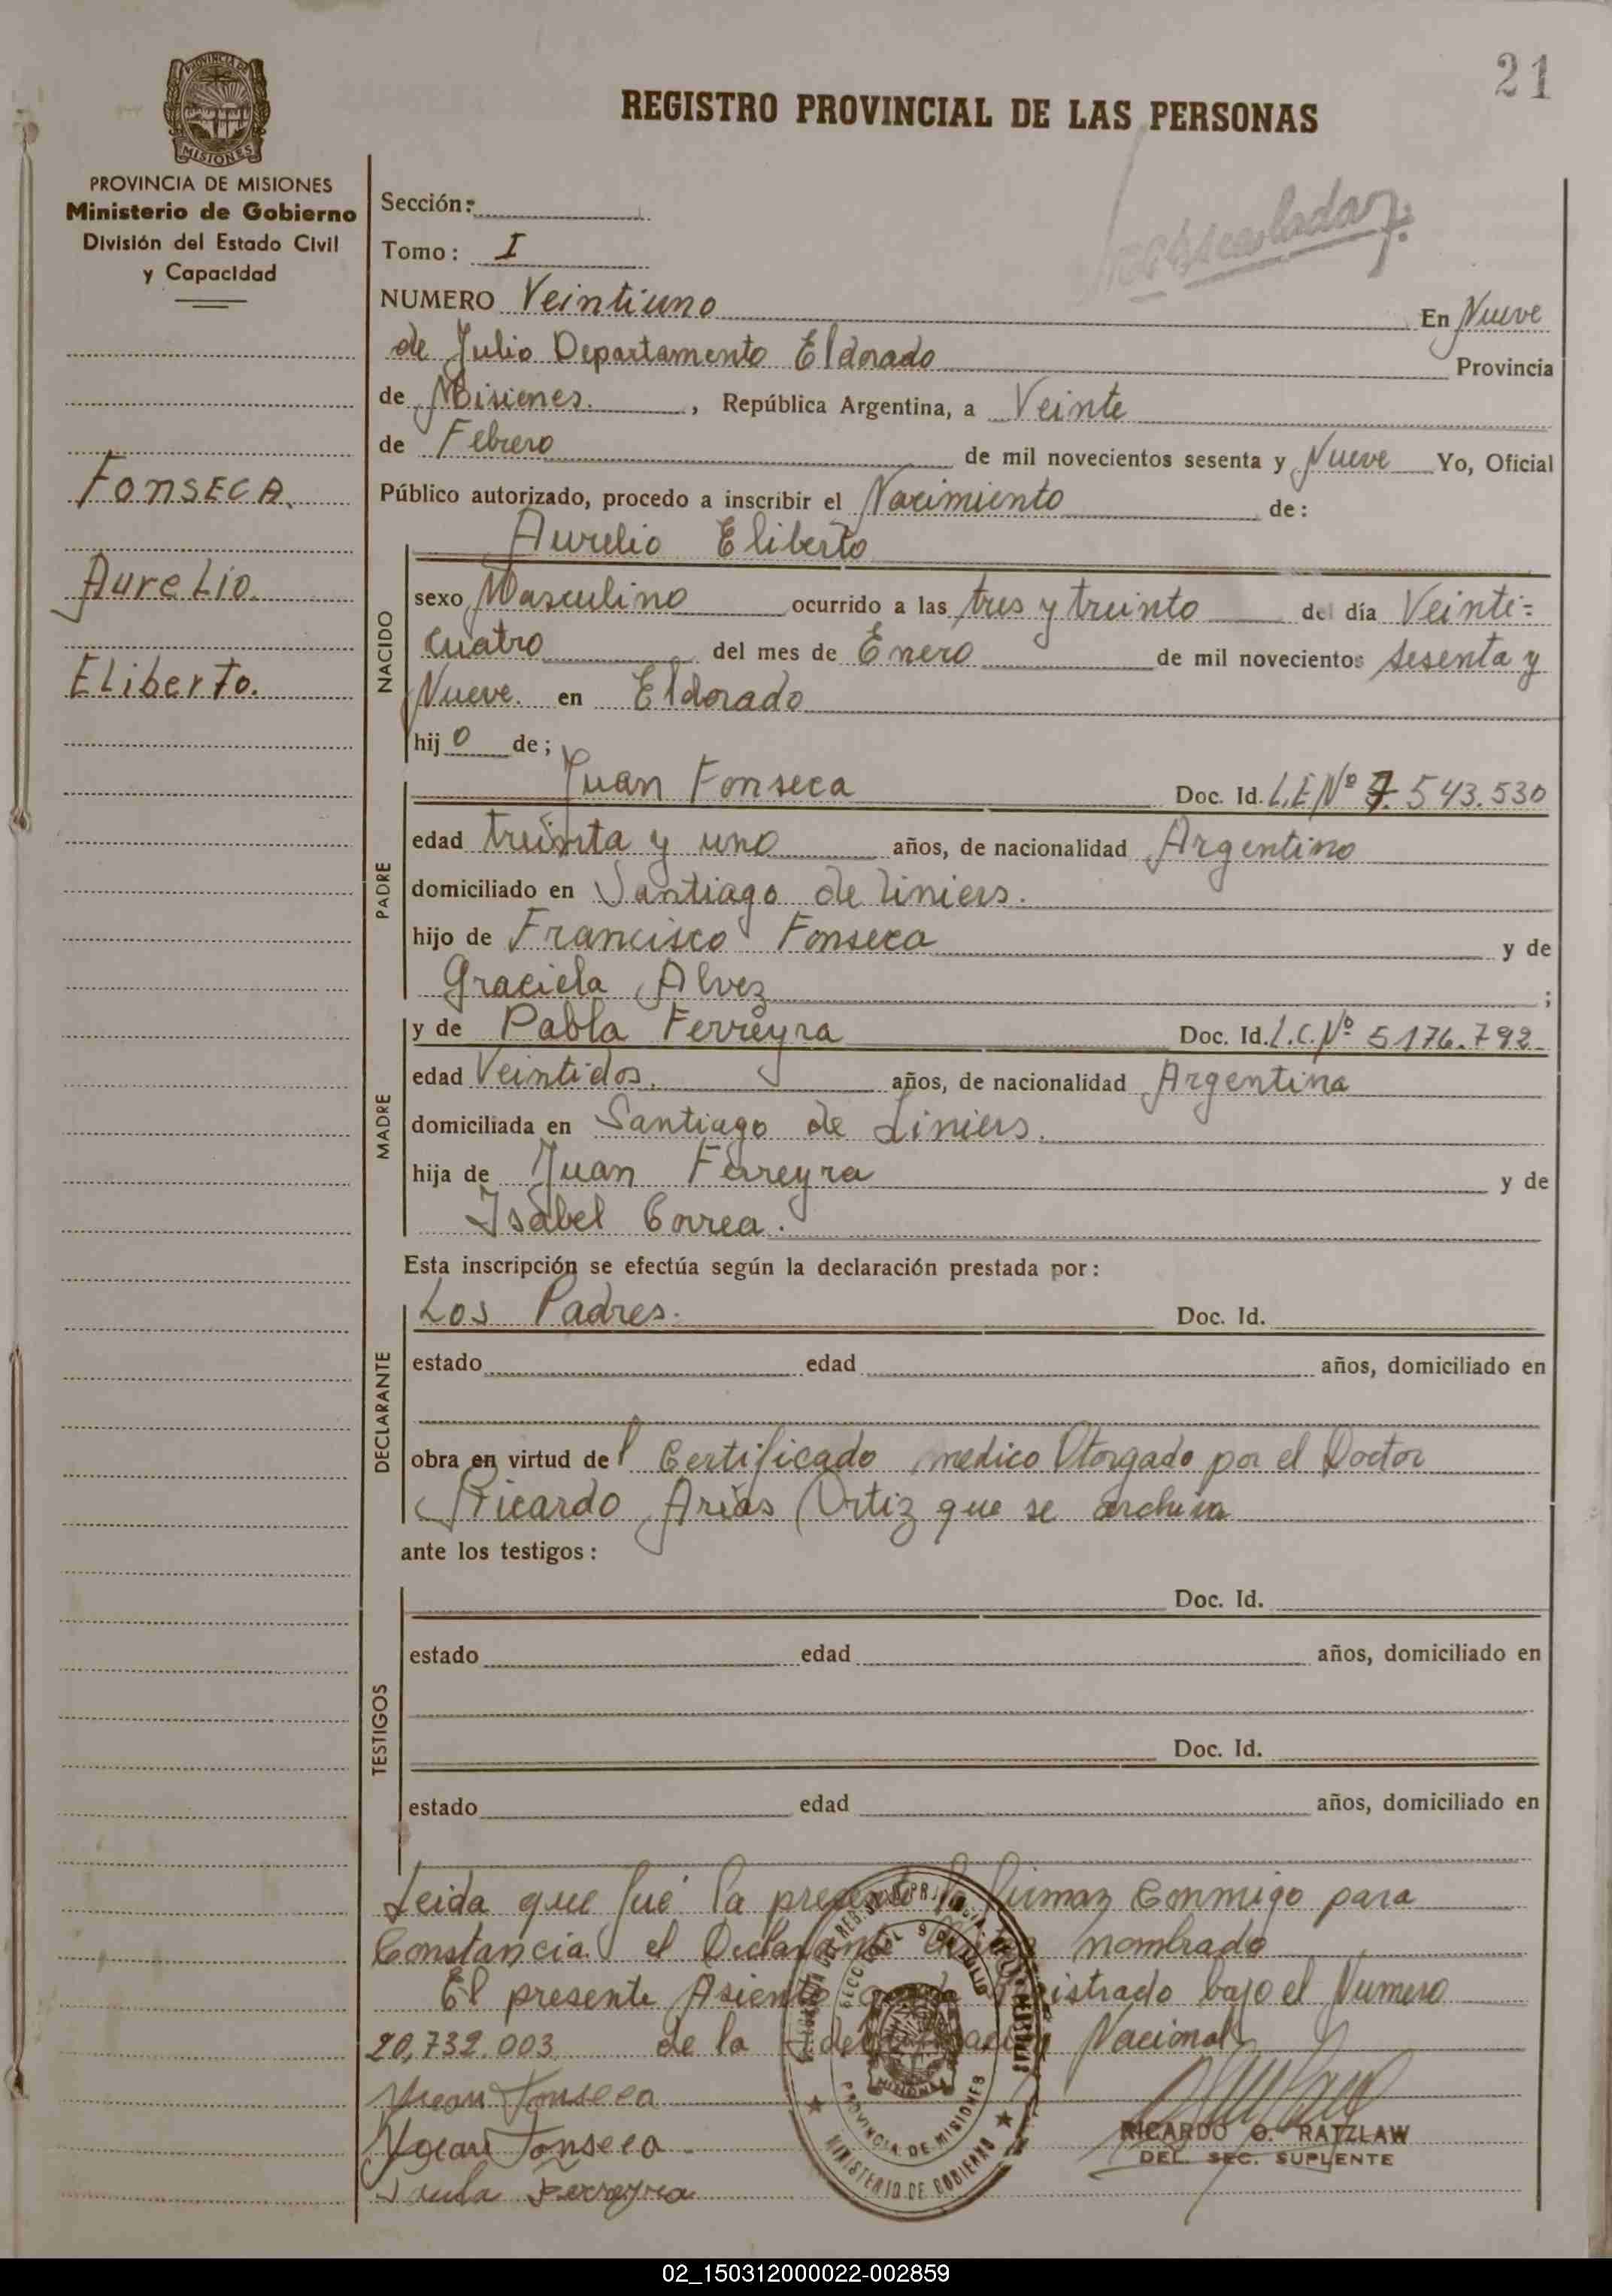 21
REGISTRO PROVINCIAL DE LAS PERSONAS
PROVINCIA DE MISIONES
MISIONES
PROVINCIA DE MISIONES
Ministerio de Gobierno
División del Estado Civil
y Capacidad
FONSECA.
AureLio.
ELiberTo.
Sección:
Tomo: I
NUMERO Veintiuno En Nueve
de Julio Departamento Eldorado Provincia
de Misiones. , República Argentina, a Veinte
de Febrero de mil novecientos sesenta y Nueve Yo, Oficial
Público autorizado, procedo a inscribir el Nacimiento de:
Aurelio Eliberto
NACIDO
sexo Masculino ocurrido a las tres y treinta del día Veinti=
cuatro del mes de Enero de mil novecientos sesenta y
Nueve. en Eldorado
hij o de;
PADRE
Juan Fonseca Doc. Id. L.E Nº 7.543.530
edad treinta y uno años, de nacionalidad Argentino
domiciliado en Santiago de Liniers.
hijo de Francisco Fonseca y de
Graciela Alvez ;
MADRE
y de Pabla Ferreyra Doc. Id. L.C. Nº 5176.792
edad Veintidos. años, de nacionalidad Argentina
domiciliada en Santiago de Liniers.
hija de Juan Ferreyra y de
Isabel Correa.
Esta inscripción se efectúa según la declaración prestada por:
DECLARANTE
Los Padres. Doc. Id.
estado edad años, domiciliado en
obra en virtud del Certificado medico Otorgado por el Doctor
Ricardo Arias Ortiz que se archiva
ante los testigos:
TESTIGOS
Doc. Id.
estado edad años, domiciliado en
Doc. Id.
estado edad años, domiciliado en
Leida que fué la presente la firman Conmigo para
Constancia el Declarante nombrado
El presente Asiento registrado bajo el Numero
20,732.003 de la Nacional
Juan Fonseca
Juan Fonseca
Paula Ferreyra
PROVINCIA DE MISIONES
MINISTERIO DE GOBIERNO
RICARDO O. RATZLAW
DEL. SEC. SUPLENTE
02_150312000022-002859